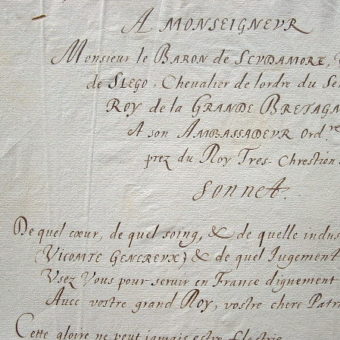 A MONSEIGNEUR
Monsieur le BARON de SCUDAMORE,
de SLEGO, Chevalier de lordre du Se
ROY de la GRANDE BRETAGN
A son AMBASSADEUR Ord.re
prez du Roy Tres-Chrestien
Sonnet.
De quel cœur, de quel soing, & de quelle indus
(VICOMTE GENEREUX) & de quel Jugement
Usez Vous pour seruir en France dignement
Avec vostre grand Roy, vostre chere Patr
Cette gloire ne peut jamais estre flestrie